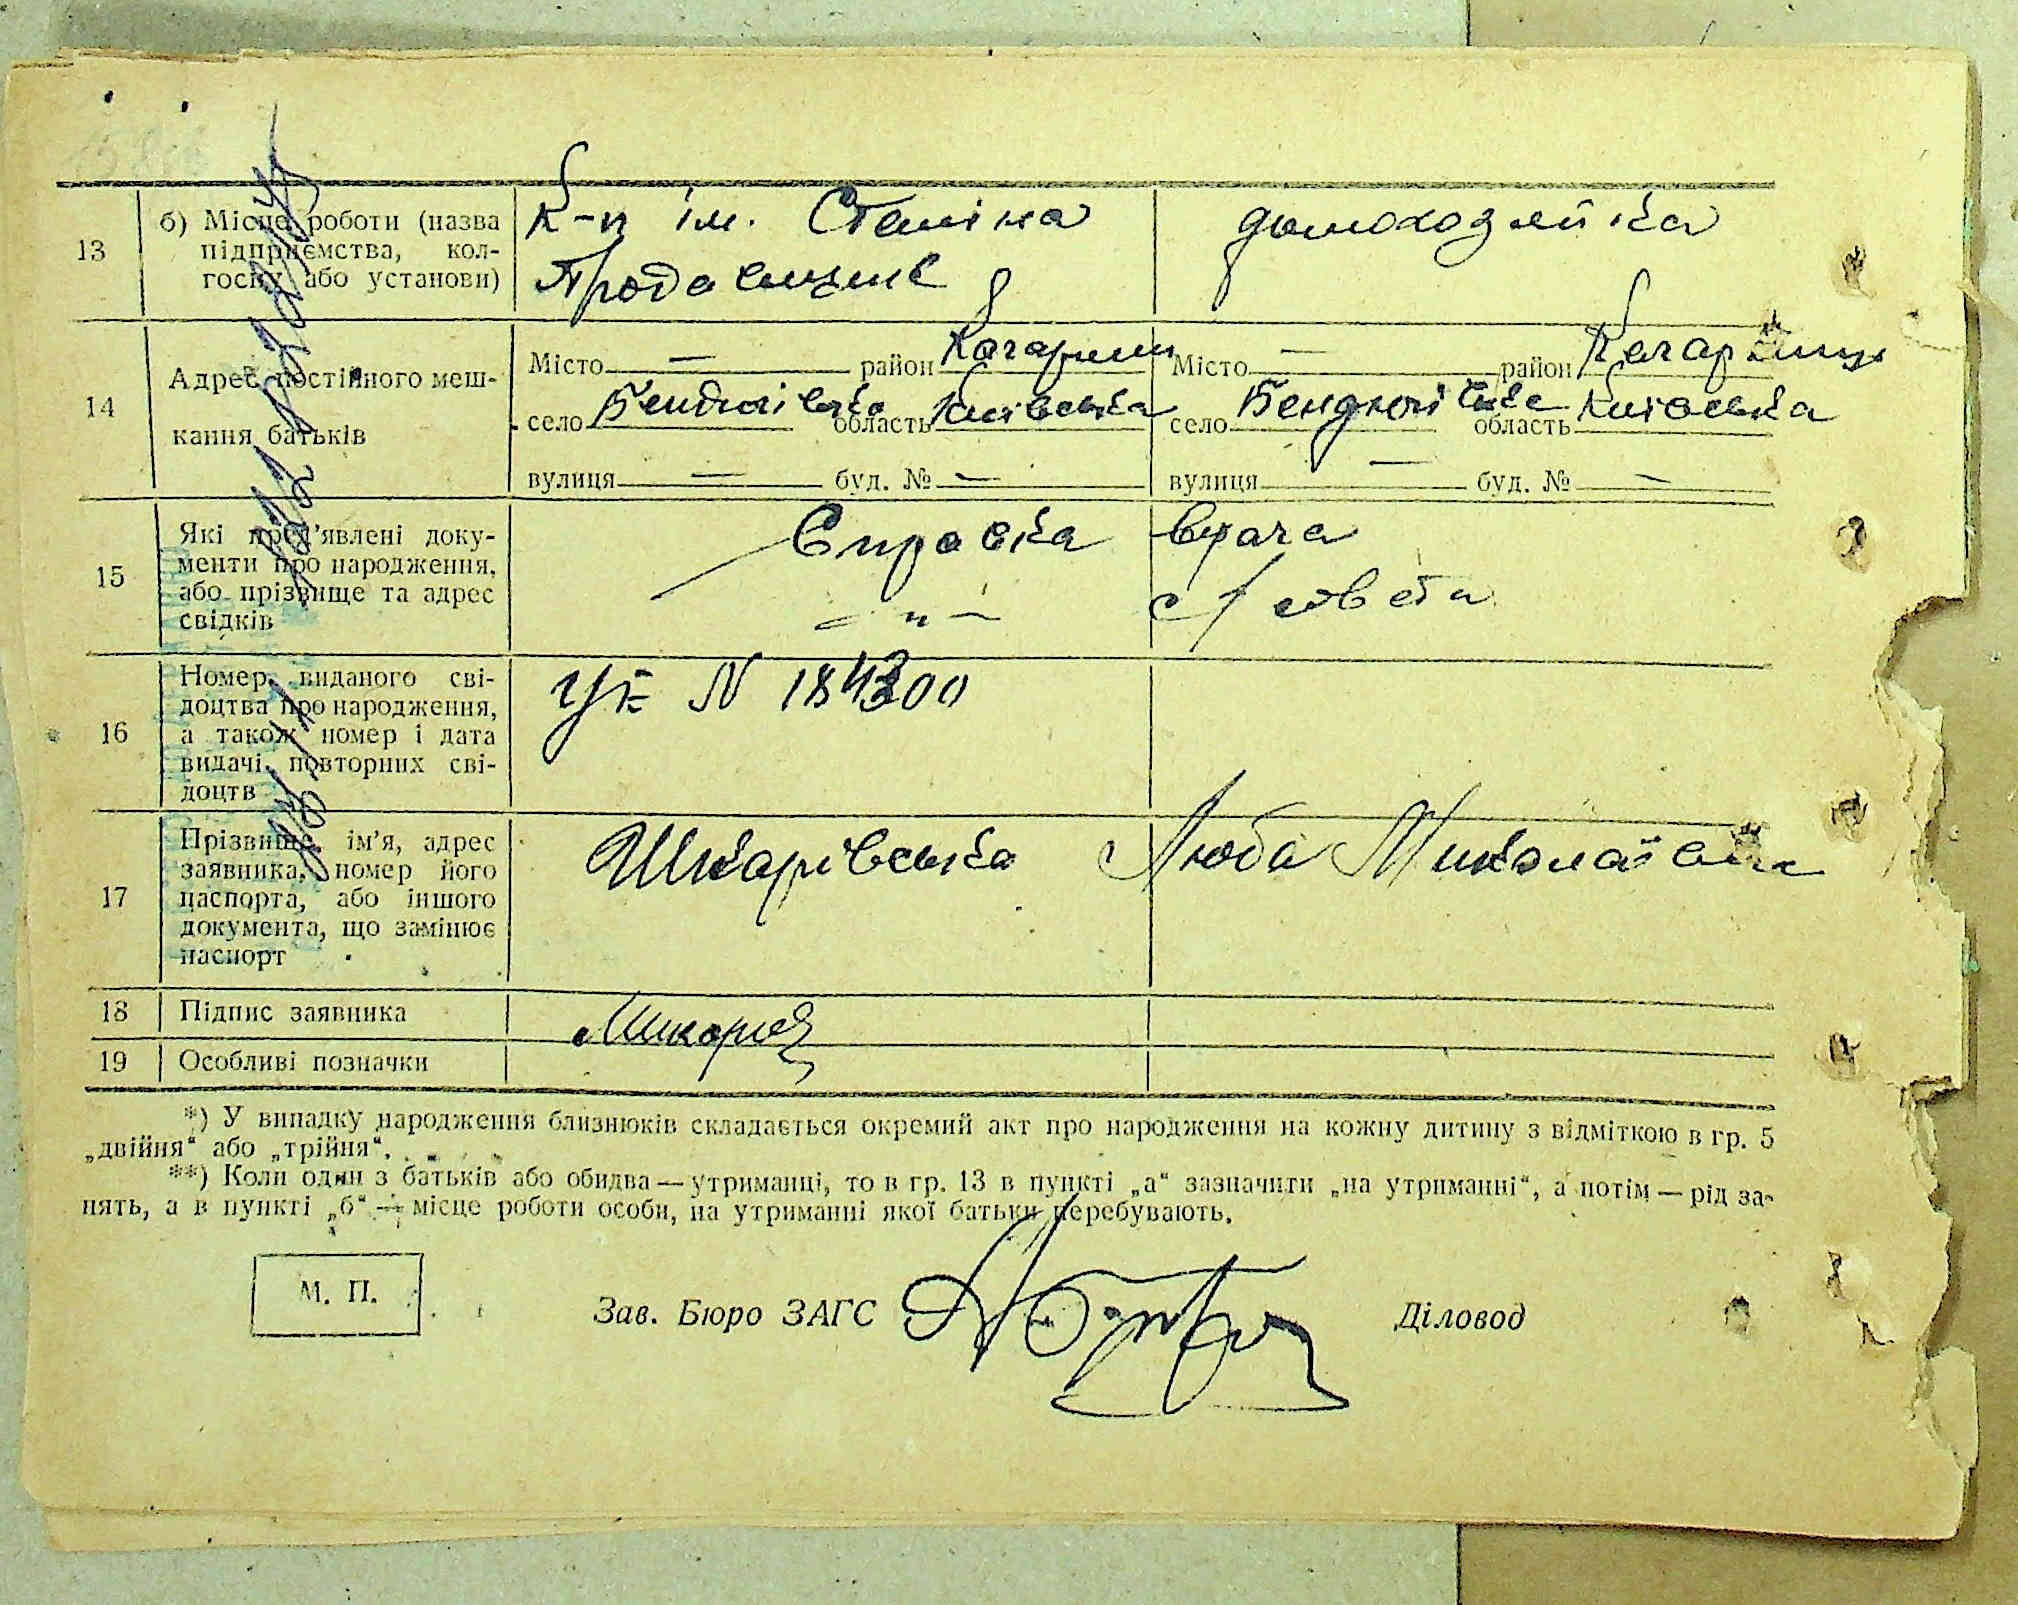 13
б) Місце роботи (назва
підприємства, кол-
госпу або установи)
к-п ім. Сталіна
домохозяйка
14
Адрес постійного меш-
кання батьків
Місто — район Кагарлик
село область Київська
вулиця — буд. № —
Місто — район
село область Київська
вулиця — буд. № —
15
Які пред'явлені доку-
менти про народження,
або прізвище та адрес
свідків
Справка врача
— " — с/совета
16
Номер виданого сві-
доцтва про народження,
а також номер і дата
видачі повторних сві-
доцтв
N
17
Прізвище, ім'я, адрес
заявника, номер його
паспорта, або іншого
документа, що замінює
паспорт
Шкарівська Люба Миколаївна
18
Підпис заявника
19
Особливі позначки
*) У випадку народження близнюків складається окремий акт про народження на кожну дитину з відміткою в гр. 5
„двійня“ або „трійня“.
**) Коли один з батьків або обидва — утриманці, то в гр. 13 в пункті „а“ зазначити „на утриманні“, а потім — рід за-
нять, а в пункті „б“ — місце роботи особи, на утриманні якої батьки перебувають.
М. П.
Зав. Бюро ЗАГС
Діловод